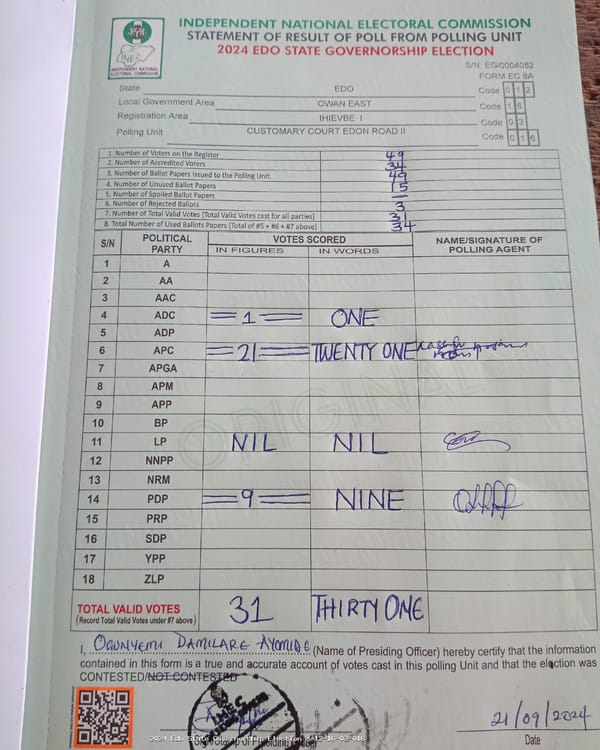 INDEPENDENT NATIONAL ELECTORAL COMMISSION
STATEMENT OF RESULT OF POLL FROM POLLING UNIT
2024 EDO STATE GOVERNORSHIP ELECTION
INDEPENDENT NATIONAL ELECTORAL COMMISSION
S/N: EG/0004082
FORM EC 8A
State EDO Code 0 1 2
Local Government Area OWAN EAST Code 1 6
Registration Area IHIEVBE I Code 0 3
Polling Unit CUSTOMARY COURT EDON ROAD II Code 0 1 6
1. Number of Voters on the Register 49
2. Number of Accredited Voters 34
3. Number of Ballot Papers issued to the Polling Unit 49
4. Number of Unused Ballot Papers 15
5. Number of Spoiled Ballot Papers —
6. Number of Rejected Ballots 3
7. Number of Total Valid Votes (Total Valid Votes cast for all parties) 31
8. Total Number of Used Ballots Papers (Total of #5 + #6 + #7 above) 34
S/N POLITICAL PARTY VOTES SCORED NAME/SIGNATURE OF POLLING AGENT
IN FIGURES IN WORDS
1 A
2 AA
3 AAC
4 ADC =1= ONE
5 ADP
6 APC =21= TWENTY ONE
7 APGA
8 APM
9 APP
10 BP
11 LP NIL NIL
12 NNPP
13 NRM
14 PDP =9= NINE
15 PRP
16 SDP
17 YPP
18 ZLP
ORIGINAL
TOTAL VALID VOTES 31 THIRTY ONE
(Record Total Valid Votes under #7 above)
I, OGUNYEMI DAMILARE AYOMIDE (Name of Presiding Officer) hereby certify that the information
contained in this form is a true and accurate account of votes cast in this polling Unit and that the election was
CONTESTED/NOT CONTESTED
21/09/2024
Date
2024 Edo State Governorship Election